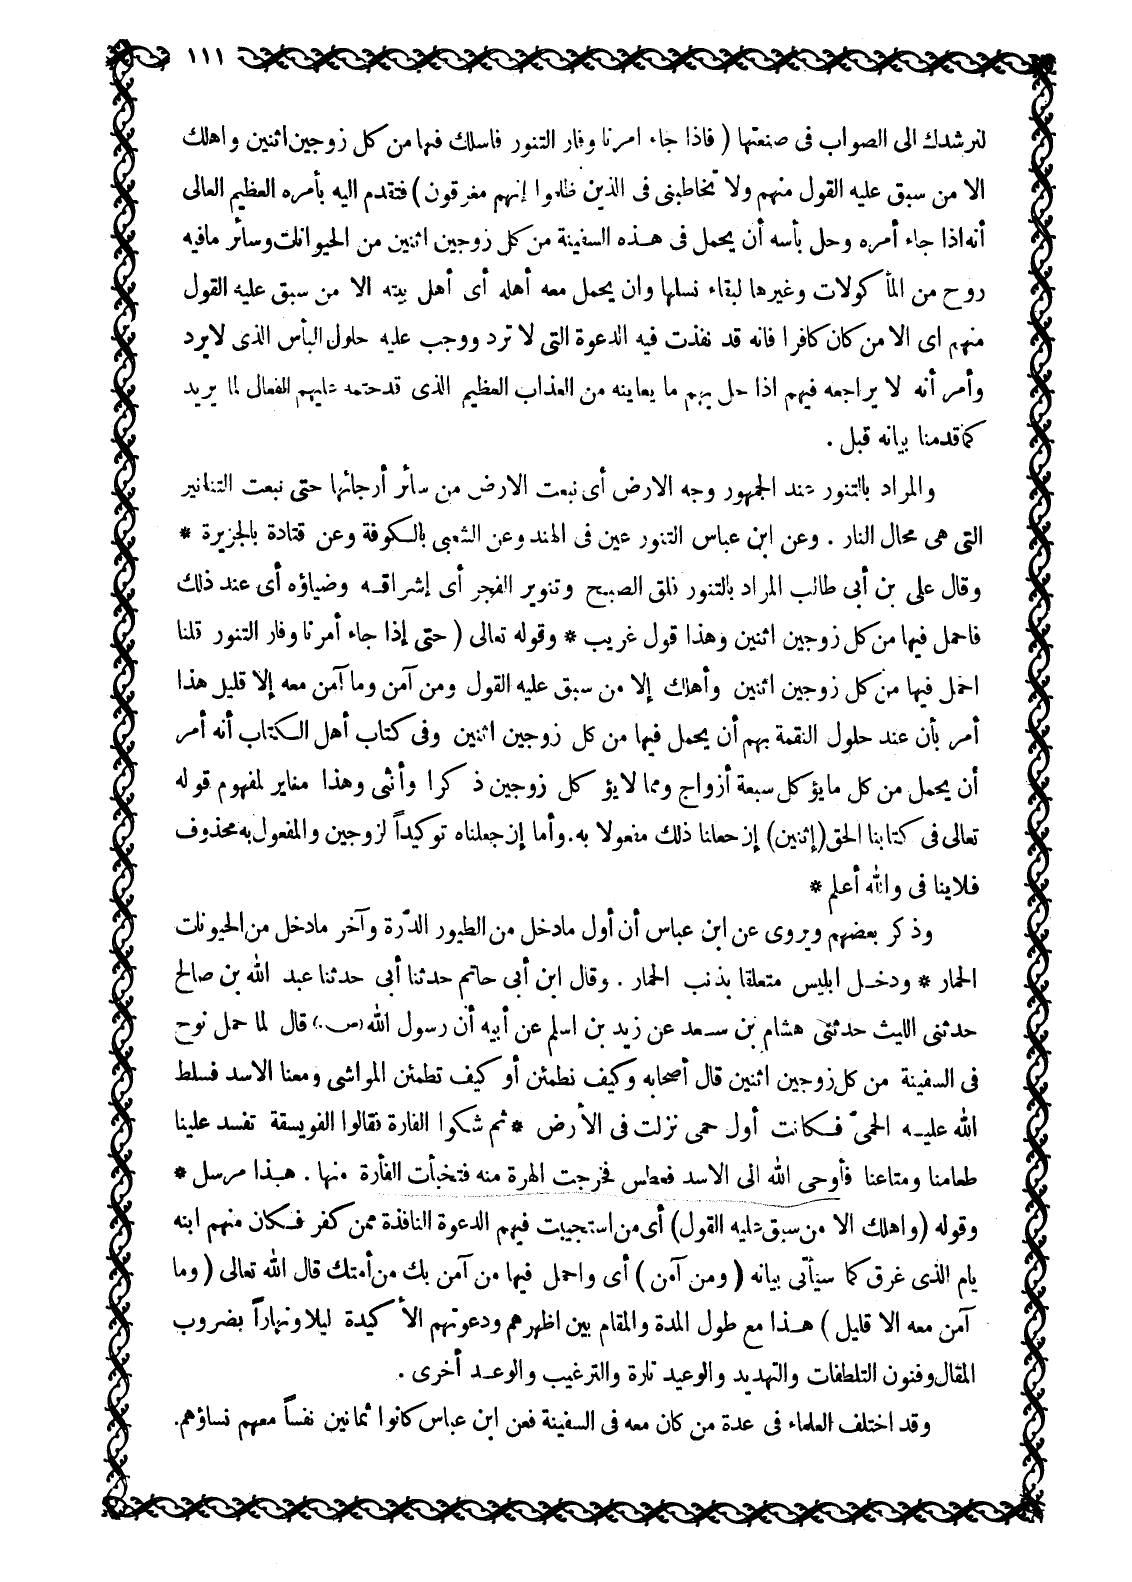 ١١١
لنرشدك الى الصواب فى صنعتها ( فاذا جاء امرنا وفار التنور فاسلك فيها من كل زوجين اثنين واهلك
الا من سبق عليه القول منهم ولا تخاطبنى فى الذين ظلموا إنهم مغرقون ) فتقدم اليه بأمره العظيم العالى
أنه اذا جاء أمره وحل بأسه أن يحمل فى هذه السفينة من كل زوجين اثنين من الحيوانات وسائر مافيه
روح من المأكولات وغيرها لبقاء نسلها وان يحمل معه أهله أى أهل بيته الا من سبق عليه القول
منهم اى الا من كان كافرا فانه قد نفذت فيه الدعوة التى لا ترد ووجب عليه حلول البأس الذى لايرد
وأمر أنه لا يراجعه فيهم اذا حل بهم ما يعاينه من العذاب العظيم الذى قدحتمه عليهم الفعال لما يريد
كما قدمنا بيانه قبل .
والمراد بالتنور عند الجمهور وجه الارض أى نبعت الارض من سائر أرجائها حتى نبعت التنانير
التى هى محال النار . وعن ابن عباس التنور عين فى الهند وعن الشعبى بالكوفة وعن قتادة بالجزيرة *
وقال على بن أبى طالب المراد بالتنور فلق الصبح وتنوير الفجر أى إشراقه وضياؤه أى عند ذلك
فاحمل فيها من كل زوجين اثنين وهذا قول غريب * وقوله تعالى ( حتى إذا جاء أمرنا وفار التنور قلنا
احمل فيها من كل زوجين اثنين وأهلك إلا من سبق عليه القول ومن آمن وما آمن معه إلا قليل هذا
أمر بأن عند حلول النقمة بهم أن يحمل فيها من كل زوجين اثنين وفى كتاب أهل الكتاب أنه أمر
أن يحمل من كل مايؤكل سبعة أزواج ومما لايؤكل زوجين ذكرا وأنثى وهذا مغاير لمفهوم قوله
تعالى فى كتابنا الحق (إثنين) إن جعلنا ذلك مفعولا به. وأما إن جعلناه توكيداً لزوجين والمفعول به محذوف
فلاينافى والله أعلم *
وذكر بعضهم ويروى عن ابن عباس أن أول مادخل من الطيور الدّرة وآخر مادخل من الحيونات
الحمار * ودخل ابليس متعلقا بذنب الحمار . وقال ابن أبى حاتم حدثنا أبى حدثنا عبد الله بن صالح
حدثنى الليث حدثنى هشام بن سعد عن زيد بن اسلم عن أبيه أن رسول الله (ص.) قال لما حمل نوح
فى السفينة من كل زوجين اثنين قال أصحابه وكيف نطمئن أو كيف تطمئن المواشى ومعنا الاسد فسلط
الله عليه الحمىّ فكانت أول حمى نزلت فى الأرض * ثم شكوا الفارة فقالوا الفويسقة تفسد علينا
طعامنا ومتاعنا فأوحى الله الى الاسد فعطس فخرجت الهرة منه فتخبأت الفأرة منها . هذا مرسل *
وقوله (واهلك الا من سبق عليه القول) أى من استجيبت فيهم الدعوة النافذة ممن كفر فكان منهم ابنه
يام الذى غرق كما سيأتى بيانه ( ومن آمن ) أى واحمل فيها من آمن بك من أمتك قال الله تعالى ( وما
آمن معه الا قليل ) هذا مع طول المدة والمقام بين اظهرهم ودعوتهم الأكيدة ليلا ونهاراً بضروب
المقال وفنون التلطفات والتهديد والوعيد تارة والترغيب والوعد أخرى .
وقد اختلف العلماء فى عدة من كان معه فى السفينة فعن ابن عباس كانوا ثمانين نفساً معهم نساؤهم.